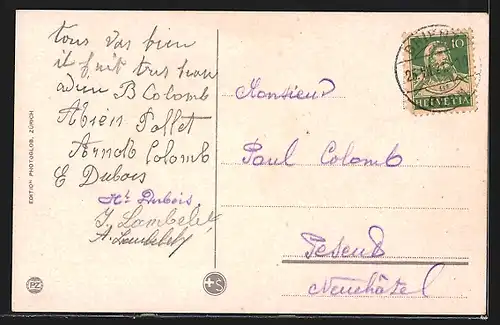 tous vas bien
il fait tres beau
B Colomb
Abien Pallet
Arnold Colomb
E Dubois
Hri Dubois
J. Lambelet
A. Lambelet
Monsieur
Paul Colomb
Peseux
Neuchâtel
10
HELVETIA
EDITION PHOTOGLOB, ZÜRICH
PZ
+S